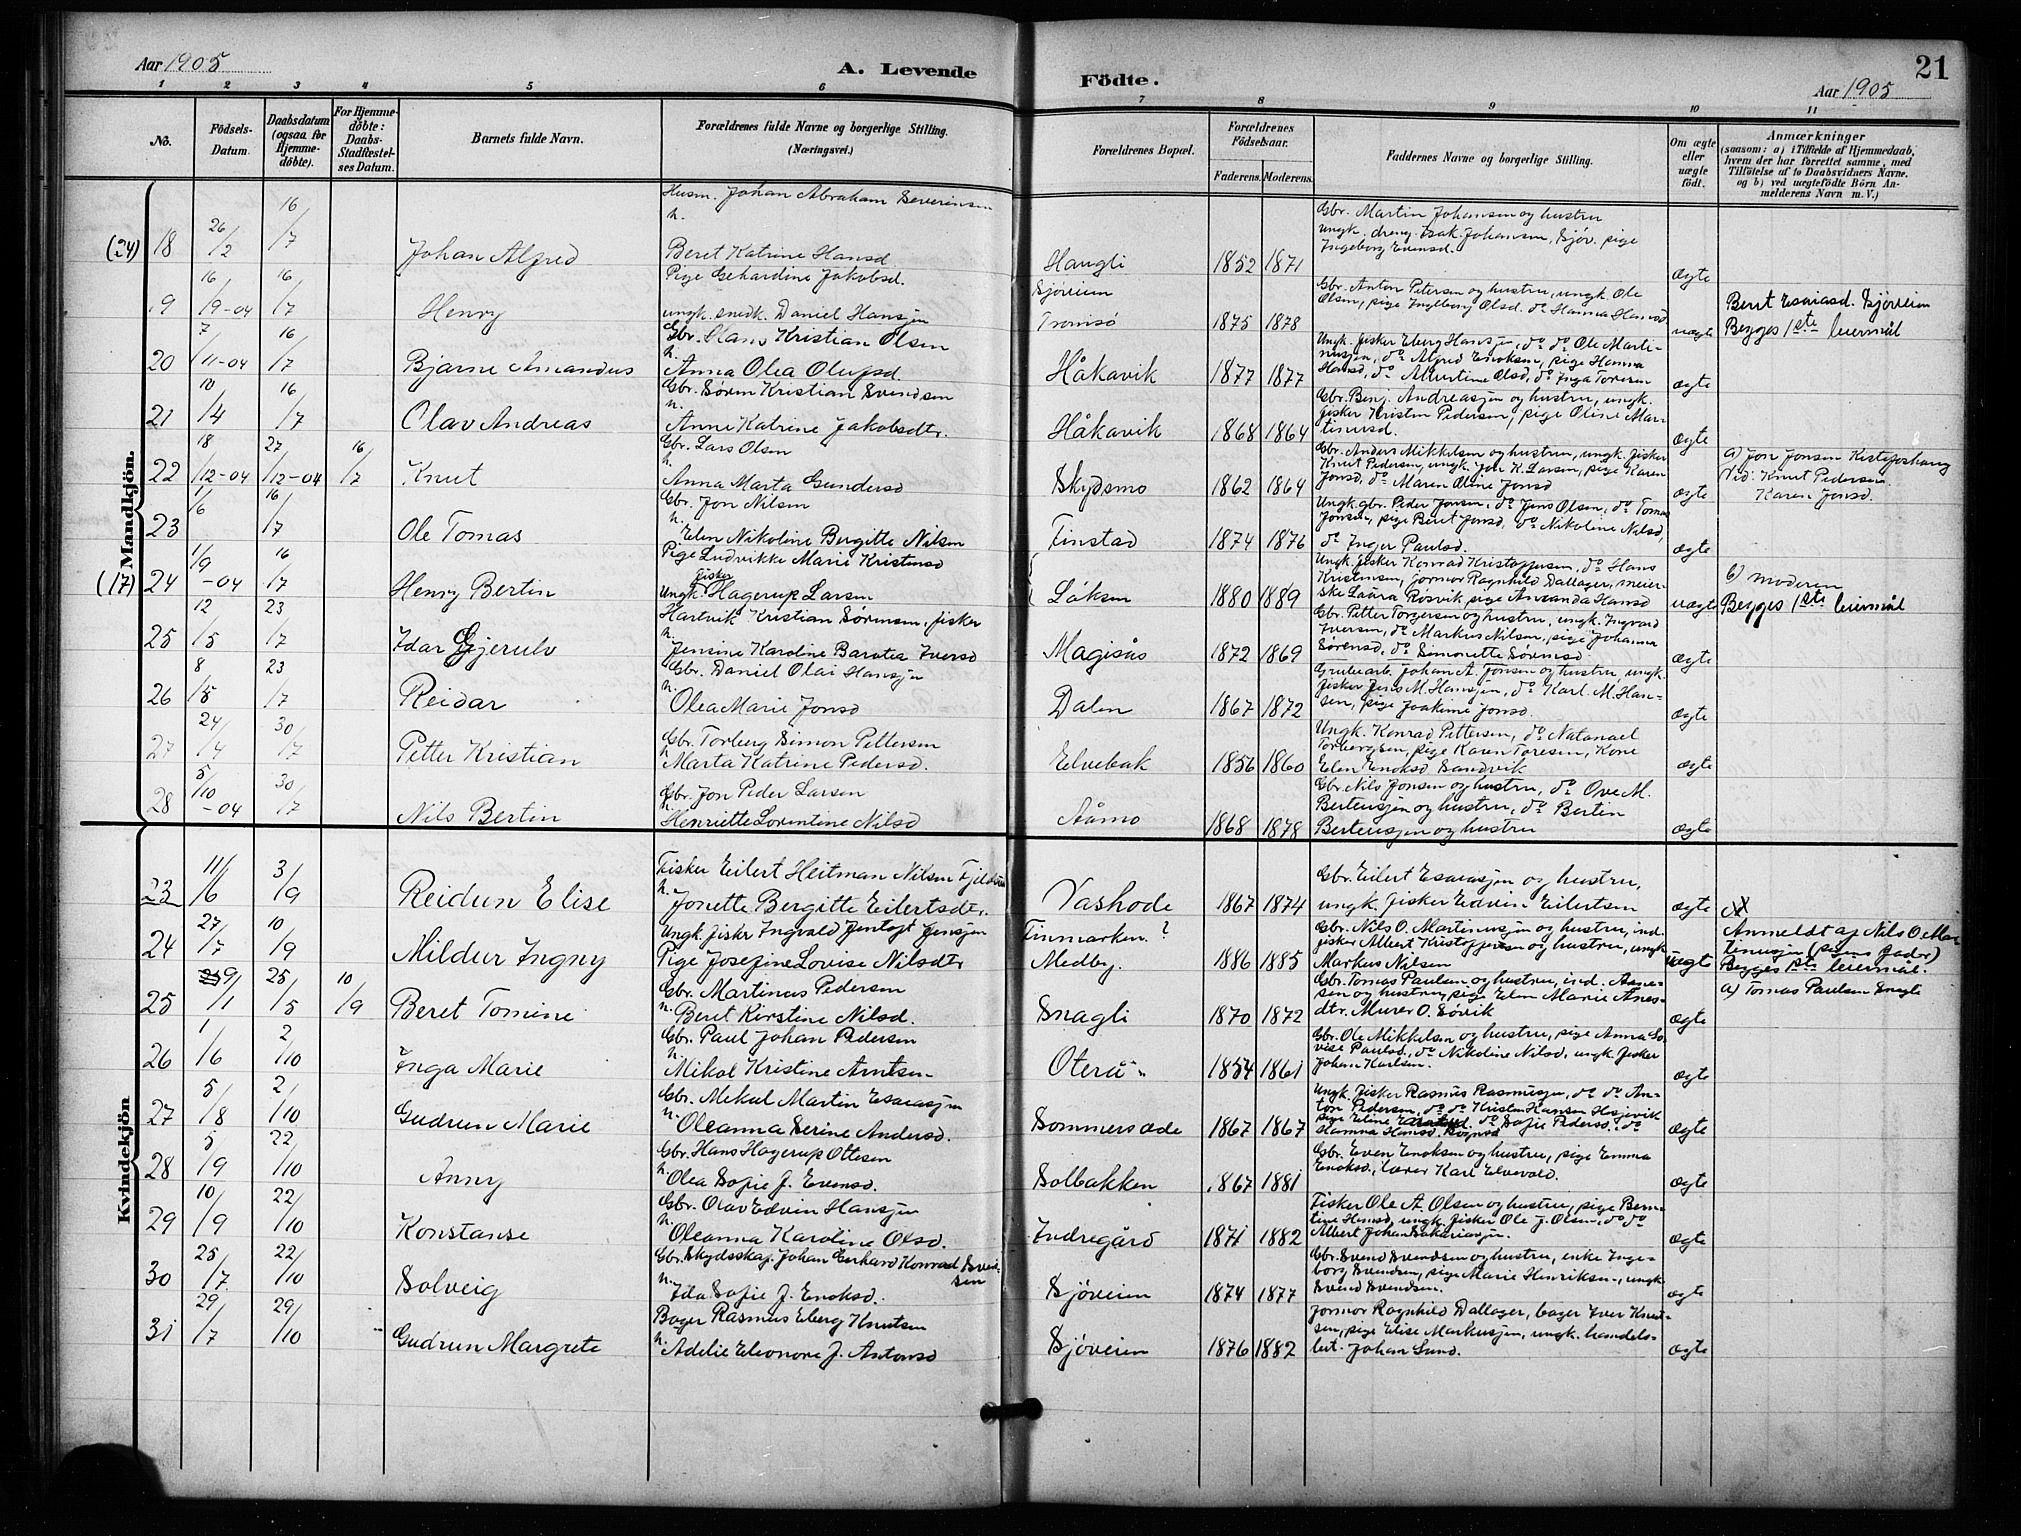 Aar 1905
A. Levende
Födte.
21
Aar 1905
1 2 3 4 5 6 7 8 9 10 11
No.
Födsels-Datum.
Daabsdatum (ogsaa for Hjemme-döbte).
For Hjemme-döbte: Daabs-Stadfæstel-ses Datum.
Barnets fulde Navn.
Forældrenes fulde Navne og borgerlige Stilling. (Næringsvei.)
Forældrenes Bopæl.
Forældrenes Födselsaar.
Faderens. Moderens.
Faddernes Navne og borgerlige Stilling.
Om ægte eller uægte födt.
Anmærkninger
(saasom: a) i Tilfælde af Hjemmedaab, hvem der har forrettet samme, med Tilföielse af to Daabsvidners Navne. og b) ved uægtefödte Börn An-melderens Navn m. V.)
Mandkjön.
Husm. Johan Abraham Severinsen
(24) 18 26/2 16/7 Johan Alfred
h. Beret Katrine Hansd
Haugli 1852 1871
Gbr. Martin Johansen og hustru
ungk. dreng Isak Johansen, Sjöv. pige
Ingeborg Evensd.
ægte
19 16/9-04 16/7 Henry
Pige Gehardine Jakobsd.
ungk. snedk. Daniel Hansen
Sjöveien
Tromsö 1875 1878
Gbr. Anton Petersen og hustru, ungk. Ole
Olsen, pige Ingeborg Olsd. do Hanna Hansd
uægte
Berit Esaiasd. Sjöveien
Begges 1ste leiermål
20 7/11-04 16/7 Bjarne Amandus
Gbr. Hans Kristian Olsen
h. Anna Olea Olufsd.
Håkavik 1877 1877
Ungk. fisker Eberg Hansen, do do Ole Marti-
nusen, do Alfred Enoksen, pige Hanna
Hansd, do Albertine Olsd, do Inga Toresen
ægte
21 10/4 16/7 Olav Andreas
Gbr. Sören Kristian Svendsen
h. Anne Katrine Jakobsdtr.
Håkavik 1868 1864
Gbr. Benj. Andreasen og hustru, ungk.
fisker Kristen Pedersen, pige Oline Mar-
tinusd.
ægte
22 18/12-04 27/12-04 16/7 Knut
Gbr. Lars Olsen
h. Anna Marta Gundersd
Skydsmo 1862 1864
Gbr. Anders Mikkelsen og hustru, ungk. fisker
Knut Pedersen, ungk. Jon K. Larsen, pige Karen
Jonsd, do Maren Oline Jonsd
ægte
a) Jon Jonsen Kistefoshaug
Vid: Knut Pedersen
Karen Jonsd.
23 1/6 16/7 Ole Tomas
Gbr. Jon Nilsen
h. Elen Nikoline Bergitte Nilsen
Finstad 1874 1876
Ungk. gbr. Peder Jonsen, do Jens Olsen, do Tomas
Jonsen, pige Beret Jonsd, do Nikoline Nilsd,
do Inger Paulsd.
ægte
(17) 24 1/9-04 16/7 Henry Bertin
Pige Ludvikke Marie Kristensd
Ungk. fisker Hagerup Larsen
Löksen 1880 1889
Ungk. fisker Konrad Kristoffersen, do Hans
Kristensen, jormor Ragnhild Dallager, meier-
ske Laura Rosvik, pige Amanda Hansd
uægte
b) moderen
Begges 1ste leiermål
25 12/5 23/7 Idar Gjerulv
Hartvik Kristian Sörensen, fisker
h. Jensine Karoline Barotea Iversd
Magisås 1872 1869
Gbr. Petter Torgersen og hustru, ungk. Ingvard
Iversen, do Markus Nilsen, pige Johanna
Sörensd, do Simonette Sörensd
ægte
26 8/5 23/7 Reidar
Gbr. Daniel Olai Hansen
h. Olea Marie Jonsd
Dalen 1867 1872
Grubearb. Johan A. Jonsen og hustru, ungk.
fisker Jens M. Hansen, do Karl M. Han-
sen, pige Joakime Jonsd.
ægte
27 24/4 30/7 Petter Kristian
Gbr. Torberg Simon Pettersen
h. Marta Katrine Pedersd.
Elvebak 1856 1860
Ungk. Konrad Pettersen, do Natanael
Torbergsen, pige Karen Toresen, Kone
Elen Enoksd Sandvik
ægte
28 5/10-04 30/7 Nils Bertin
Gbr. Jon Peder Larsen
h. Henriette Lorentine Nilsd
Aåmo 1868 1878
Gbr. Nils Jonsen og hustru, do Ove M.
Bertensen og hustru, do Bertin
Bertensen og hustru
ægte
Kvindekjön
23 11/6 3/9 Reidun Elise
Fisker Eilert Heitman Nilsen
h. Jonette Bergitte Eilertsdtr.
Vashode 1867 1874
Gbr. Eilert Esaiassen og hustru,
ungk. fisker Edvin Eilertsen
ægte
24 27/7 10/9 Mildur Ingny
Ungk. fisker Ingvald Jentoft Jensen
Pige Josefine Lovise Nilsdtr
Finmarken?
Medby. 1886 1885
Gbr. Nils O. Martinusen og hustru, ind.
fisker Albert Kristoffersen og hustru, ungk
Markus Nilsen
uægte
Anmeldt af Nils O. Mar
tinusen (pigens fader)
Begges 1ste leiermål.
25 9/1 25/5 10/9 Beret Tomine
Gbr. Martinus Pedersen
h. Beret Kirstine Nilsd.
Snagli 1870 1872
Gbr. Tomas Paulsen og hustru, ind.
sen og hustru, pige Elen Marie
dtr. Murer O. Sövik
ægte
a) Tomas Paulsen
26 1/6 2/10 Inga Marie
Gbr. Paul Johan Pedersen
h. Mikal Kristine Arntsen
Oterå 1854 1861
Gbr. Ole Mikkelsen og hustru, pige Anna Lo-
vise Paulsd., do Nikoline Nilsd, ungk. fisker
Johan Karlsen.
ægte
27 5/8 2/10 Gudrun Marie
Gbr. Mekal Martin Esaiassen
h. Oleanna Serine Andersd.
Sommersæde 1867 1867
Ungk. fisker Rasmus Rasmussen, do do An-
ton Pedersen, do do Kristen Hansen
pige Eline do Sofie Pedersd. do
Hanna Hansd.
ægte
28 5/9 22/10 Anny
Gbr. Hans Hagerup Ottesen
h. Olea Sofie J. Evensd.
Solbakken 1867 1881
Gbr. Even Enoksen og hustru, pige Emma
Enoksd, lærer Karl Elvevold.
ægte
29 10/9 22/10 Konstanse
Gbr. Olav Edvin Hansen
h. Oleanna Karoline Olsd.
Indregård 1871 1882
Fisker Ole A. Olsen og hustru, pige Bern-
tine Hansd, ungk. fisker Ole J. Olsen, do do
Albert Johan Sakariassen.
ægte
30 25/7 22/10 Solveig
Gbr. Skydsskaf. Johan Gerhard Konrad Svend-
sen
h. Ida Sofie J. Enoksd.
Sjöveien 1874 1877
Gbr. Svend Svendsen og hustru, enke Inge-
borg Svendsen, pige Marie Henriksen, ungk.
Svend Svendsen.
ægte
31 29/7 29/10 Gudrun Margrete
Bager Rasmus Eberg Knutsen
h. Adelie Eleonore J. Antonsd
Sjöveien 1876 1882
Jormor Ragnhild Dallager, bager Iver Knud-
sen, pige Elise Markussen, ungk. handels-
bet. Johan Lund.
ægte